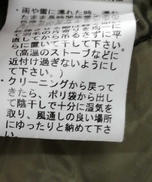 ・雨や雪に濡れた時
らに置いて干して下さ
(高温のストーブなどに
近付け過ぎないようにし
て下さい。)
・クリーニングから戻って
きたら、ポリ袋から出し
て陰干しで十分に湿気を
取り、風通しの良い場所
にゆったりと納めて下さ
い。